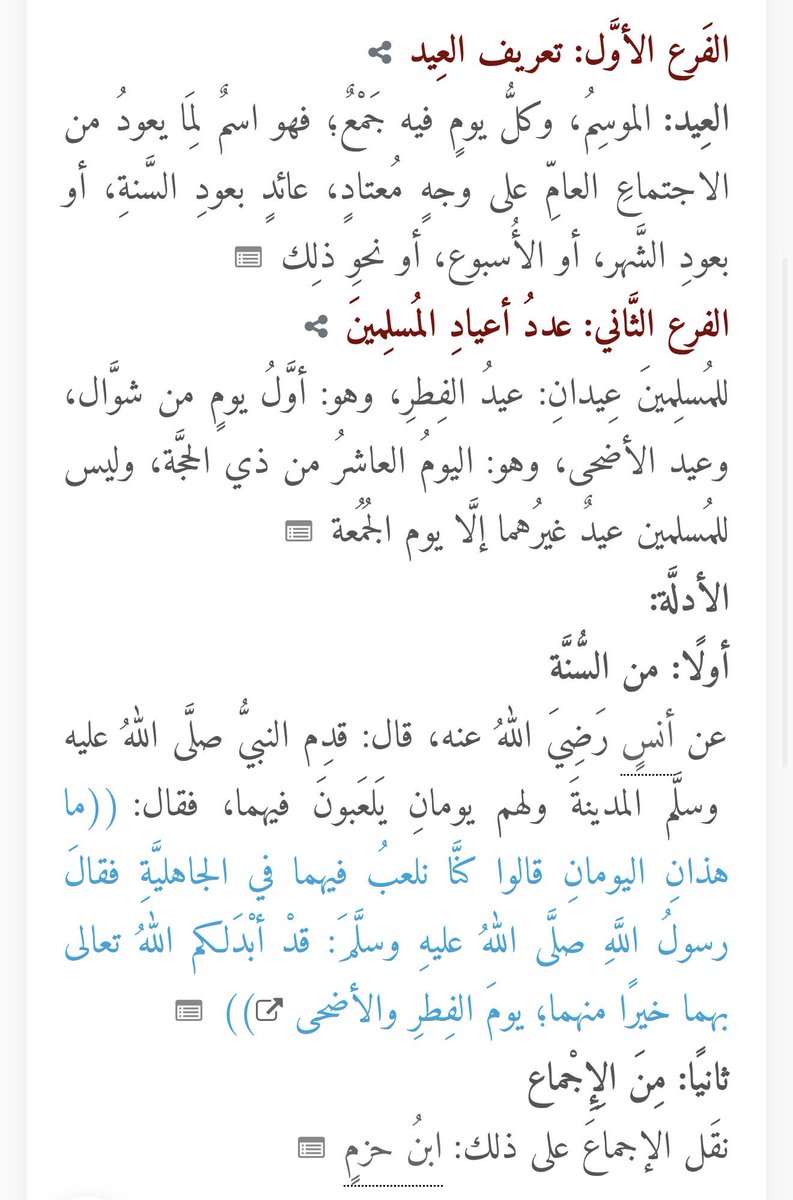 الفَرع الأوَّل: تعريف العِيد
العِيد: الموسِمُ، وكلُّ يومٍ فيه جَمْعٌ؛ فهو اسمٌ لِمَا يعودُ من
الاجتماعِ العامِّ على وجهٍ مُعتادٍ، عائدٍ بعودِ السَّنةِ، أو
بعودِ الشَّهر، أو الأُسبوع، أو نحوِ ذلِك
الفرع الثَّاني: عددُ أعيادِ المُسلِمينَ
للمُسلِمينَ عِيدانِ: عيدُ الفِطرِ، وهو: أوَّلُ يومٍ من شوَّال،
وعيد الأضحى، وهو: اليومُ العاشرُ من ذي الحجَّة، وليس
للمُسلمين عيدٌ غيرُهما إلَّا يوم الجُمُعة
الأدلَّة:
أولًا: من السُّنَّة
عن أنسٍ رَضِيَ اللهُ عنه، قال: قدِم النبيُّ صلَّى اللهُ عليه
وسلَّم المدينةَ ولهم يومانِ يَلعَبونَ فيهما، فقال: ((ما
هذانِ اليومانِ قالوا كنَّا نلعبُ فيهما في الجاهليَّةِ فقالَ
رسولُ اللَّهِ صلَّى اللهُ عليهِ وسلَّمَ: قدْ أبْدَلكم اللهُ تعالى
بهما خيرًا منهما؛ يومَ الفِطرِ والأضحى))
ثانيًا: مِنَ الإِجْماع
نقَل الإجماعَ على ذلك: ابنُ حزمٍ